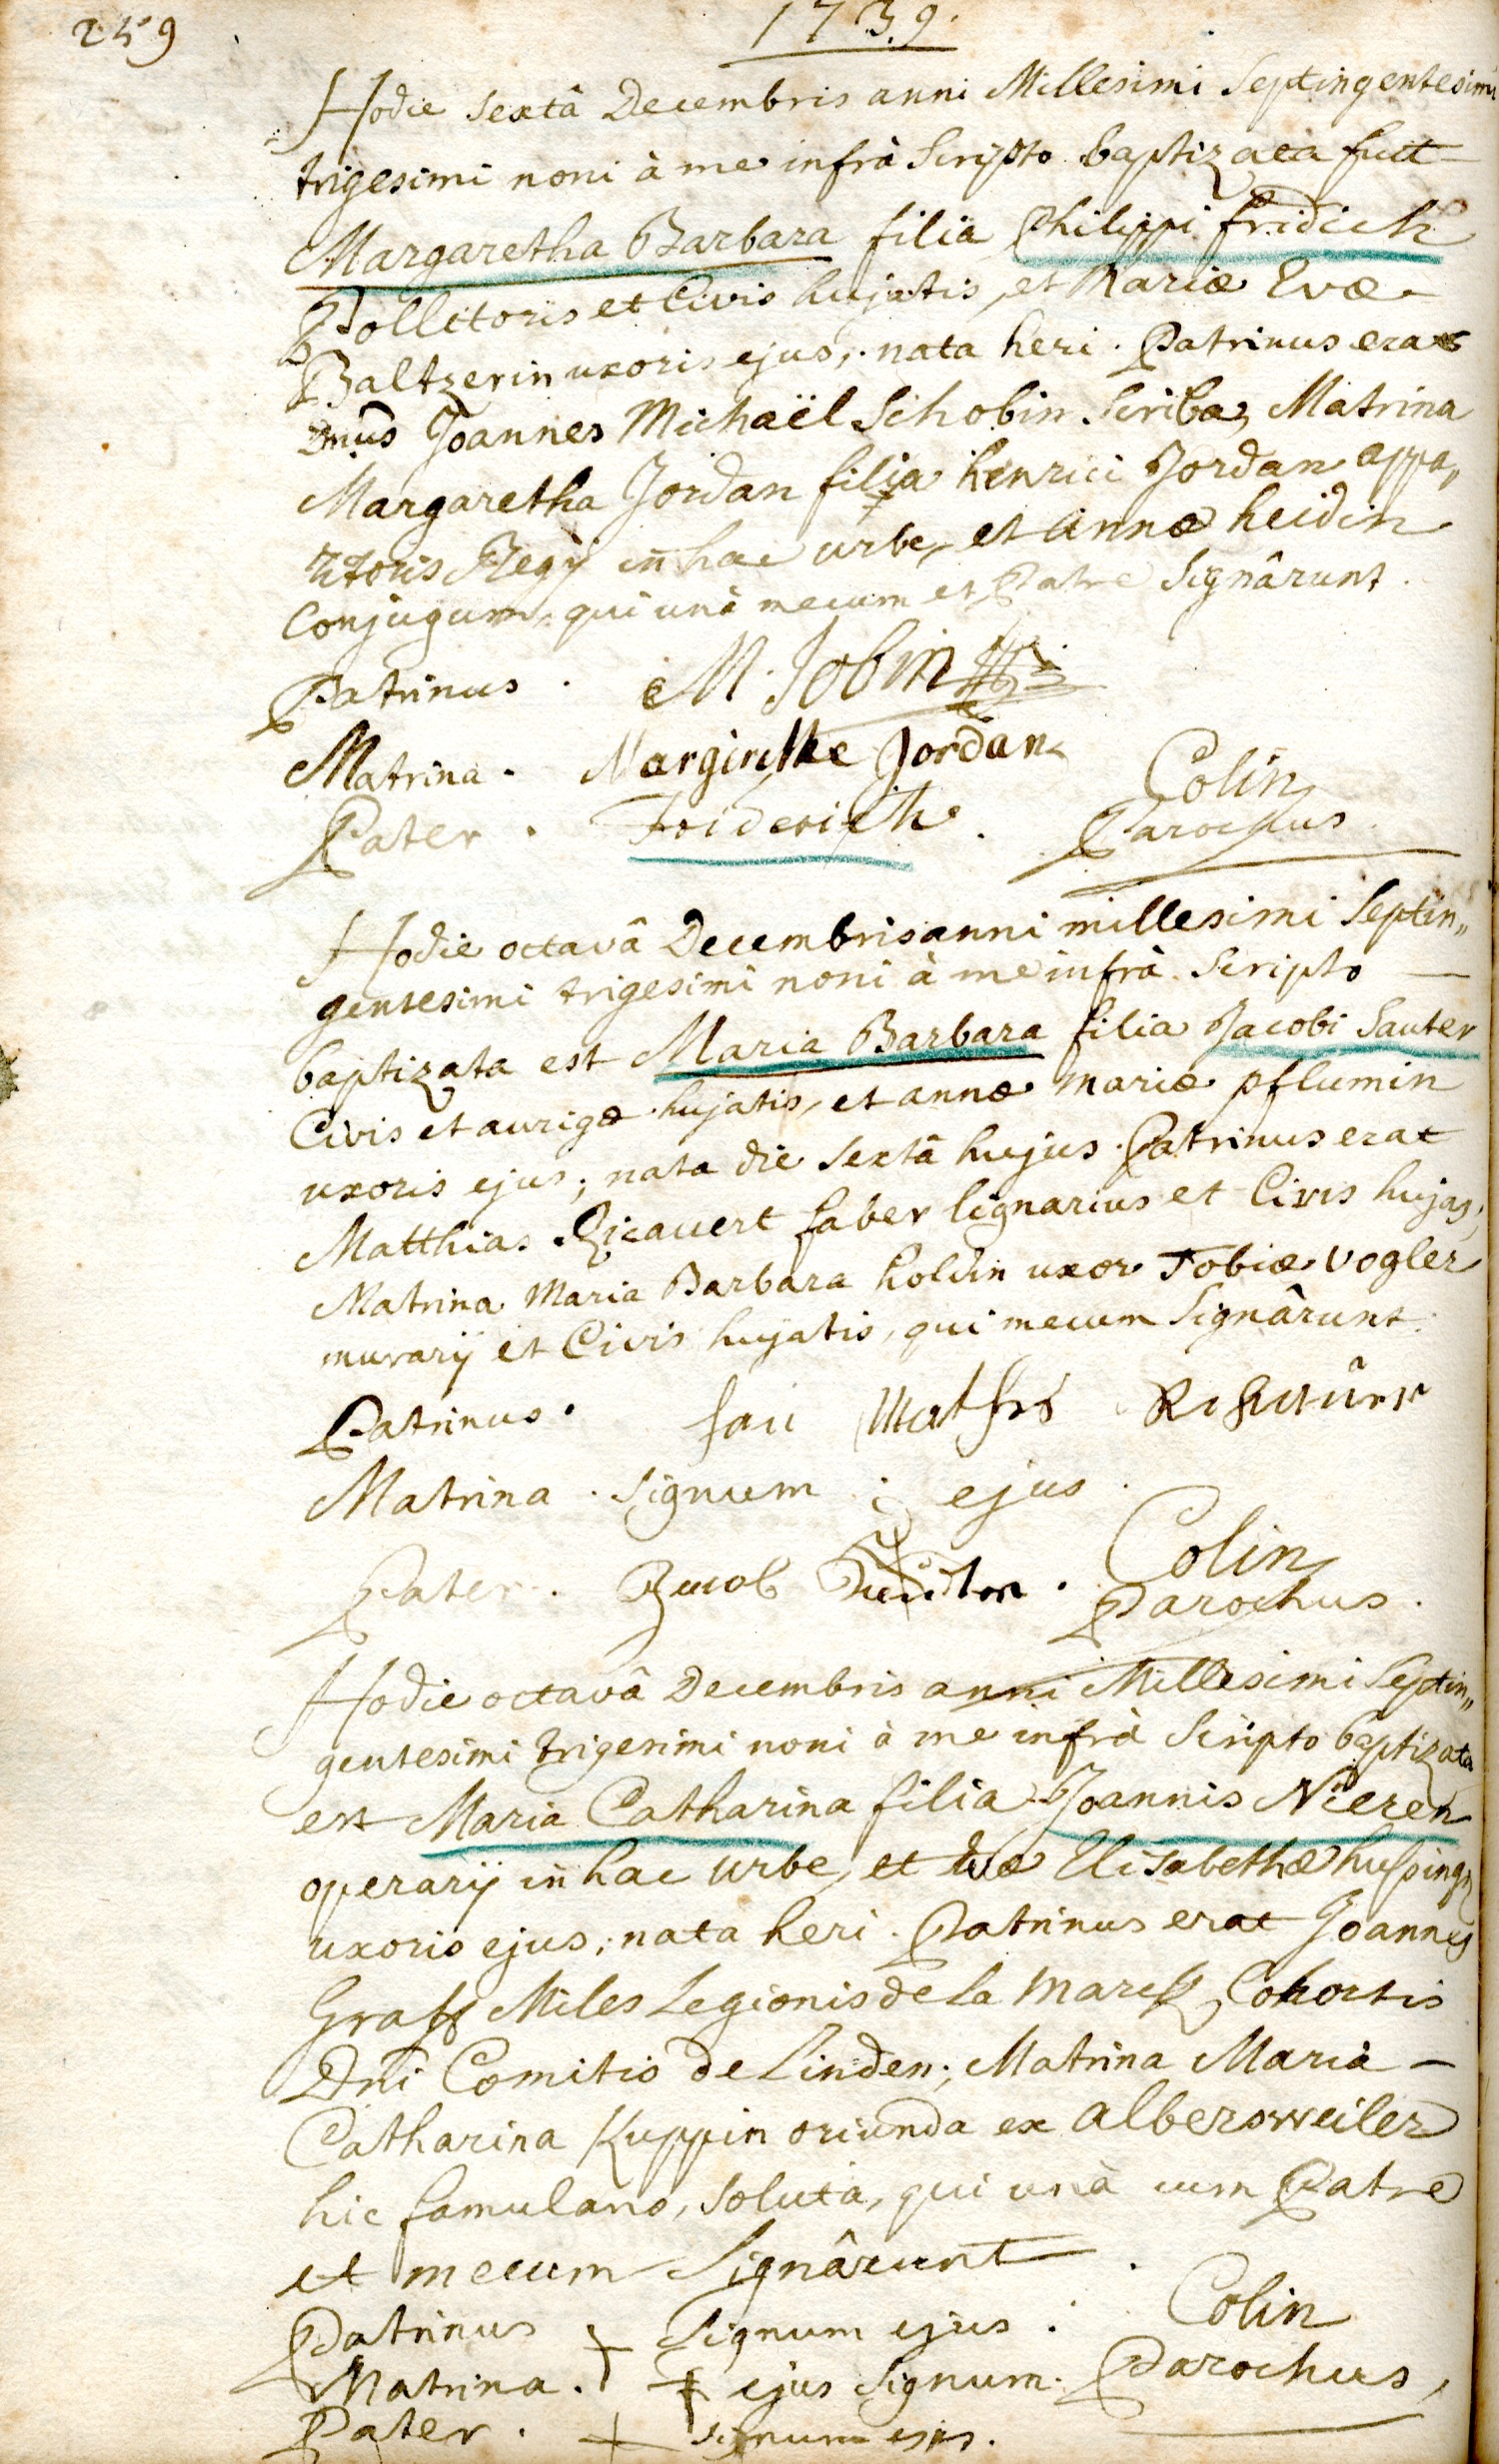 259
1739.
Hodie sextâ Decembris anni Millesimi Septingentesimi
trigesimi noni à me infrà Scripto baptizata fuit
Margaretha Barbara filia Philippi fridich
Pollitoris et Civis hujatis, et Mariæ Evæ
Baltzerin uxoris ejus, nata heri. Patrinus erat
Dnus Joannes Michaël Schobin Scriba, Matrina
Margaretha Jordan filia henrici Jordan appa„
ritoris Regij in hac urbe, et annæ heidin
Conjugum, qui unà mecum et Patre Signârunt.
Patrinus. M. Jobin
Matrina. Margirethe Jordan
Pater. Friderich.
Colin
Parochus
Hodie octavâ Decembris anni millesimi Septin„
gentesimi trigesimi noni à me infrà Scripto
baptizata est Maria Barbara filia Jacobi Sauter
Civis et aurigæ hujatis, et annæ mariæ pflumin
uxoris ejus; nata die sextâ hujus. Patrinus erat
Matthias Ricauert faber lignarius et Civis hujas,
Matrina Maria Barbara holdin uxor Tobiæ Vogler
murarij et Civis hujatis, qui mecum Signârunt.
Patrinus.
Matrina. Signum ejus.
Pater. Jacob
Colin
Parochus.
Hodie octavâ Decembris anni Millesimi Septin„
gentesimi trigesimi noni à me infrà Scripto baptizata
est Maria Catharina filia Joannis Nieren
operarij in hac urbe, et Elisabethæ
uxoris ejus; nata heri. Patrinus erat Joannes
Graff Miles Legionis de la Marck, Cohortis
Dni Comitis de Linden; Matrina Maria
Catharina Kuppin oriunda ex Albersweiler
hic famulans, soluta, qui unà cum Patre
et mecum Signârunt.
Patrinus + Signum ejus.
Matrina. + ejus Signum.
Pater. + Signum ejus.
Colin
Parochus,